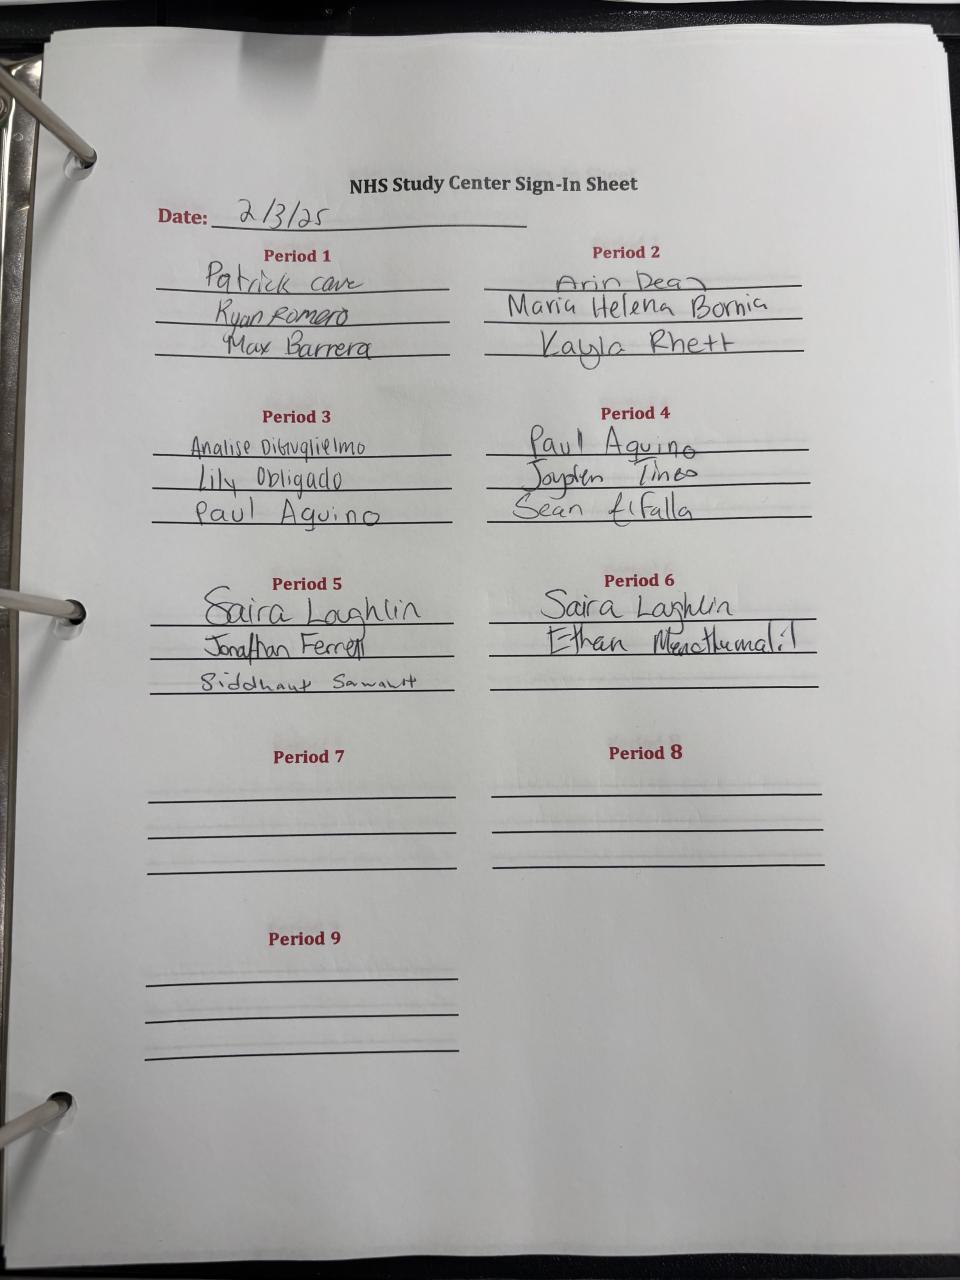 NHS Study Center Sign-In Sheet
Date: 2/3/25
Period 1
Patrick cave
Ryan Romero
Max Barrera
Period 2
Arin Dean
Maria Helena Bornia
Kayla Rhett
Period 3
Analise DiGuglielmo
Lily Obligado
Paul Aquino
Period 4
Paul Aquino
Jayden Tineo
Sean ElFalla
Period 5
Saira Laghlin
Jonathan Ferrell
Siddhant Sawant
Period 6
Saira Laghlin
Ethan
Period 7
Period 8
Period 9